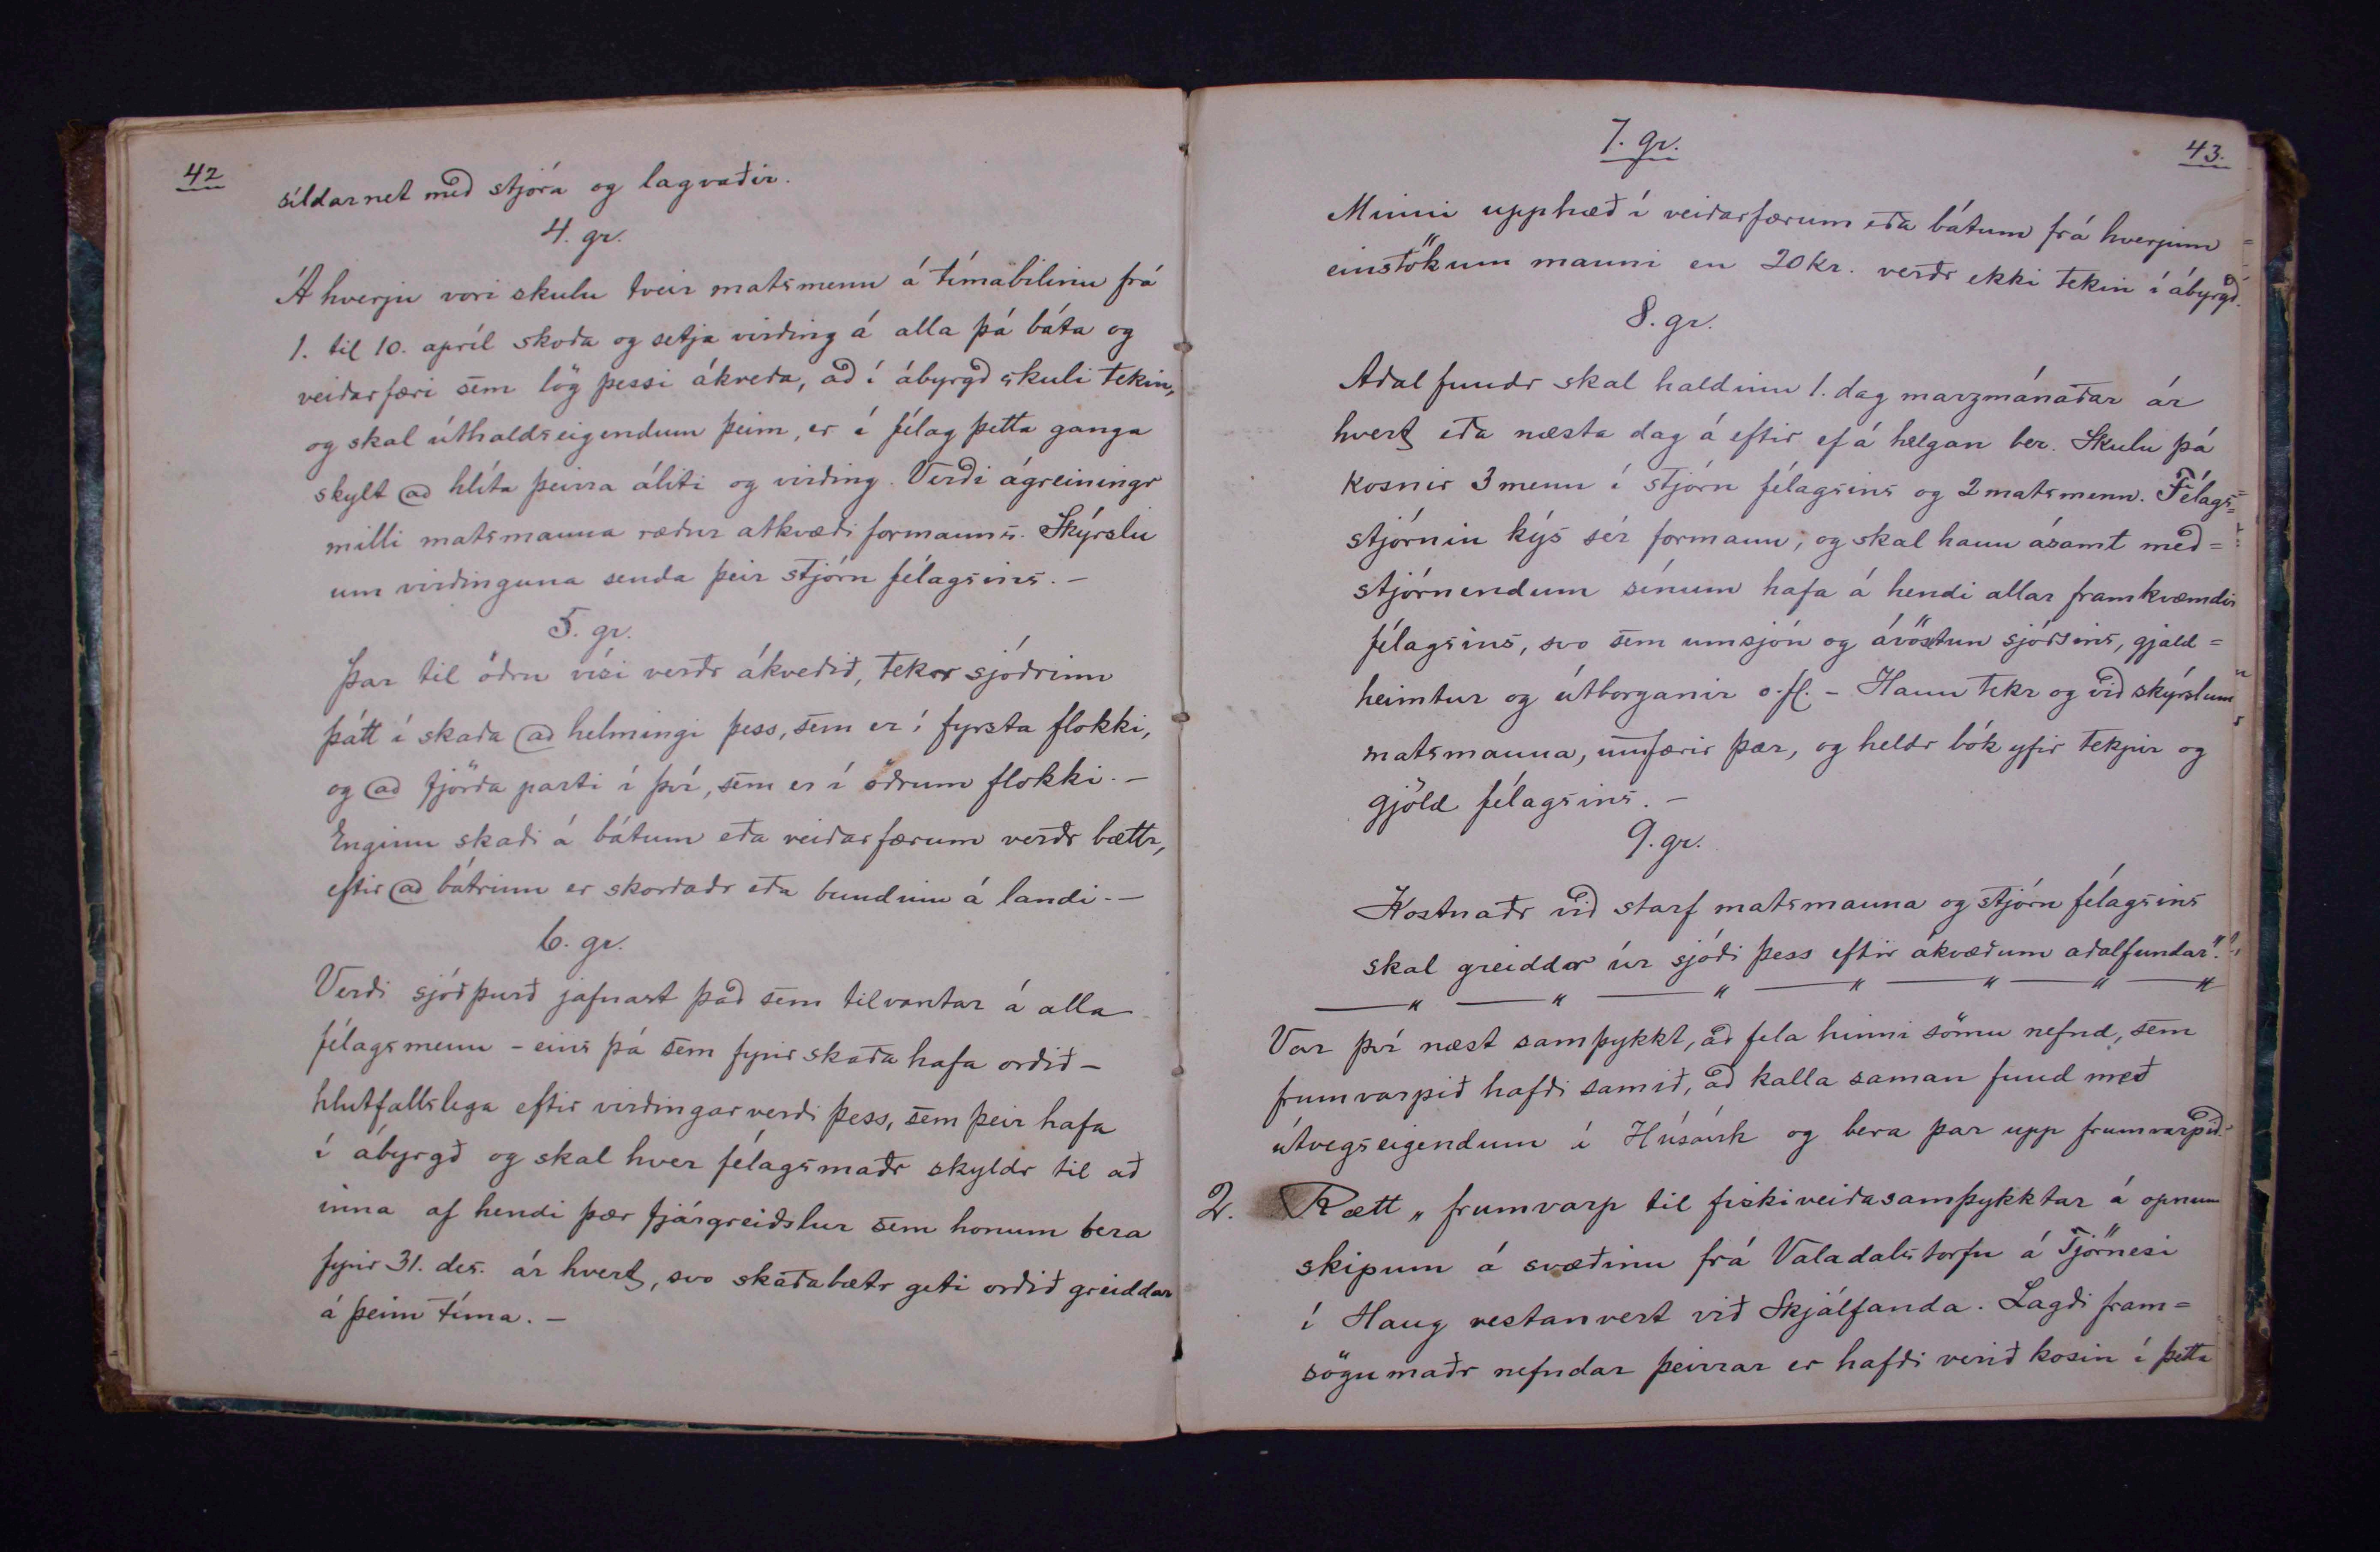 42
síldarnet með stjóra og lagvaðir.
4. gr.
Á hverju vori skulu tveir matsmenn á tímabilinu frá
1. til 10. apríl skoða og setja virðing á alla þá báta og
veiðarfæri sem lög þessi ákveða, að í ábyrgð skuli tekin,
og skal úthaldseigendum þeim, er í félag þetta ganga
skylt að hlíta þeirra áliti og virðing. Verði ágreiningr
milli matsmanna ræður atkvæði formanns. Skýrslu
um virðinguna senda þeir stjórn félagsins. –
5. gr.
Þar til öðru vísi verðr ákveðið, tekr sjóðrinn
þátt í skaða að helmingi þess, sem er í fyrsta flokki,
og að fjórða parti í því, sem er í öðrum flokki. –
Enginn skaði á bátum eða veiðarfærum verðr bættr,
eftir að bátrinn er skorðaðr eða bundinn á landi. –
6. gr.
Verði sjóðþurð jafnast það sem tilvantar á alla
félagsmenn – eins þá sem fyrir skaða hafa orðið –
hlutfallslega eftir virðingarverði þess, sem þeir hafa
í ábyrgð og skal hver félagsmaðr skyldr til að
inna af hendi þær fjárgreiðslur sem honum bera
fyrir 31. des. ár hvert, svo skaðabætr geti orðið greiddar
á þeim tíma. –
43.
7. gr.
Minni upphæð í veiðarfærum eða bátum frá hverjum
einstökum manni en 20 kr. verðr ekki tekin í ábyrgð.
8. gr.
Aðalfundr skal haldinn 1. dag marzmánaðar ár
hvert eða næsta dag á eftir ef á helgan ber. Skulu þá
kosnir 3 menn í stjórn félagsins og 2 matsmenn. Félags=
stjórnin kýs sér formann, og skal hann ásamt með=
stjórnendum sínum hafa á hendi allar framkvæmdir
félagsins, svo sem umsjón og ávöxtun sjóðsins, gjald=
heimtur og útborganir o. fl. – Hann tekr og við skýrslum
matsmanna, innfærir þær, og heldr bók yfir tekjur og
gjöld félagsins. –
9. gr.
Kostnaðr við starf matsmanna og stjórn félagsins
skal greiddr úr sjóði þess eftir ákvæðum aðalfundar".
— " — " — " — " — " — " — "
Var því næst samþykkt, að fela hinni sömu nefnd, sem
frumvarpið hafði samið, að kalla saman fund með
útvegseigendum í Húsavík og bera þar upp frumvarpið.
2. Rætt „frumvarp til fiskiveiðasamþykktar á opnum
skipum á svæðinu frá Valadalstorfu á Tjörnesi
í Haug vestanvert við Skjálfanda. Lagði fram=
sögumaðr nefndar þeirrar er hafði verið kosin í þetta